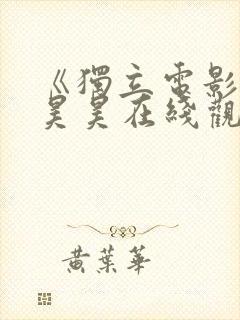 《獨立電影
昊昊在綫觀
黃葉華